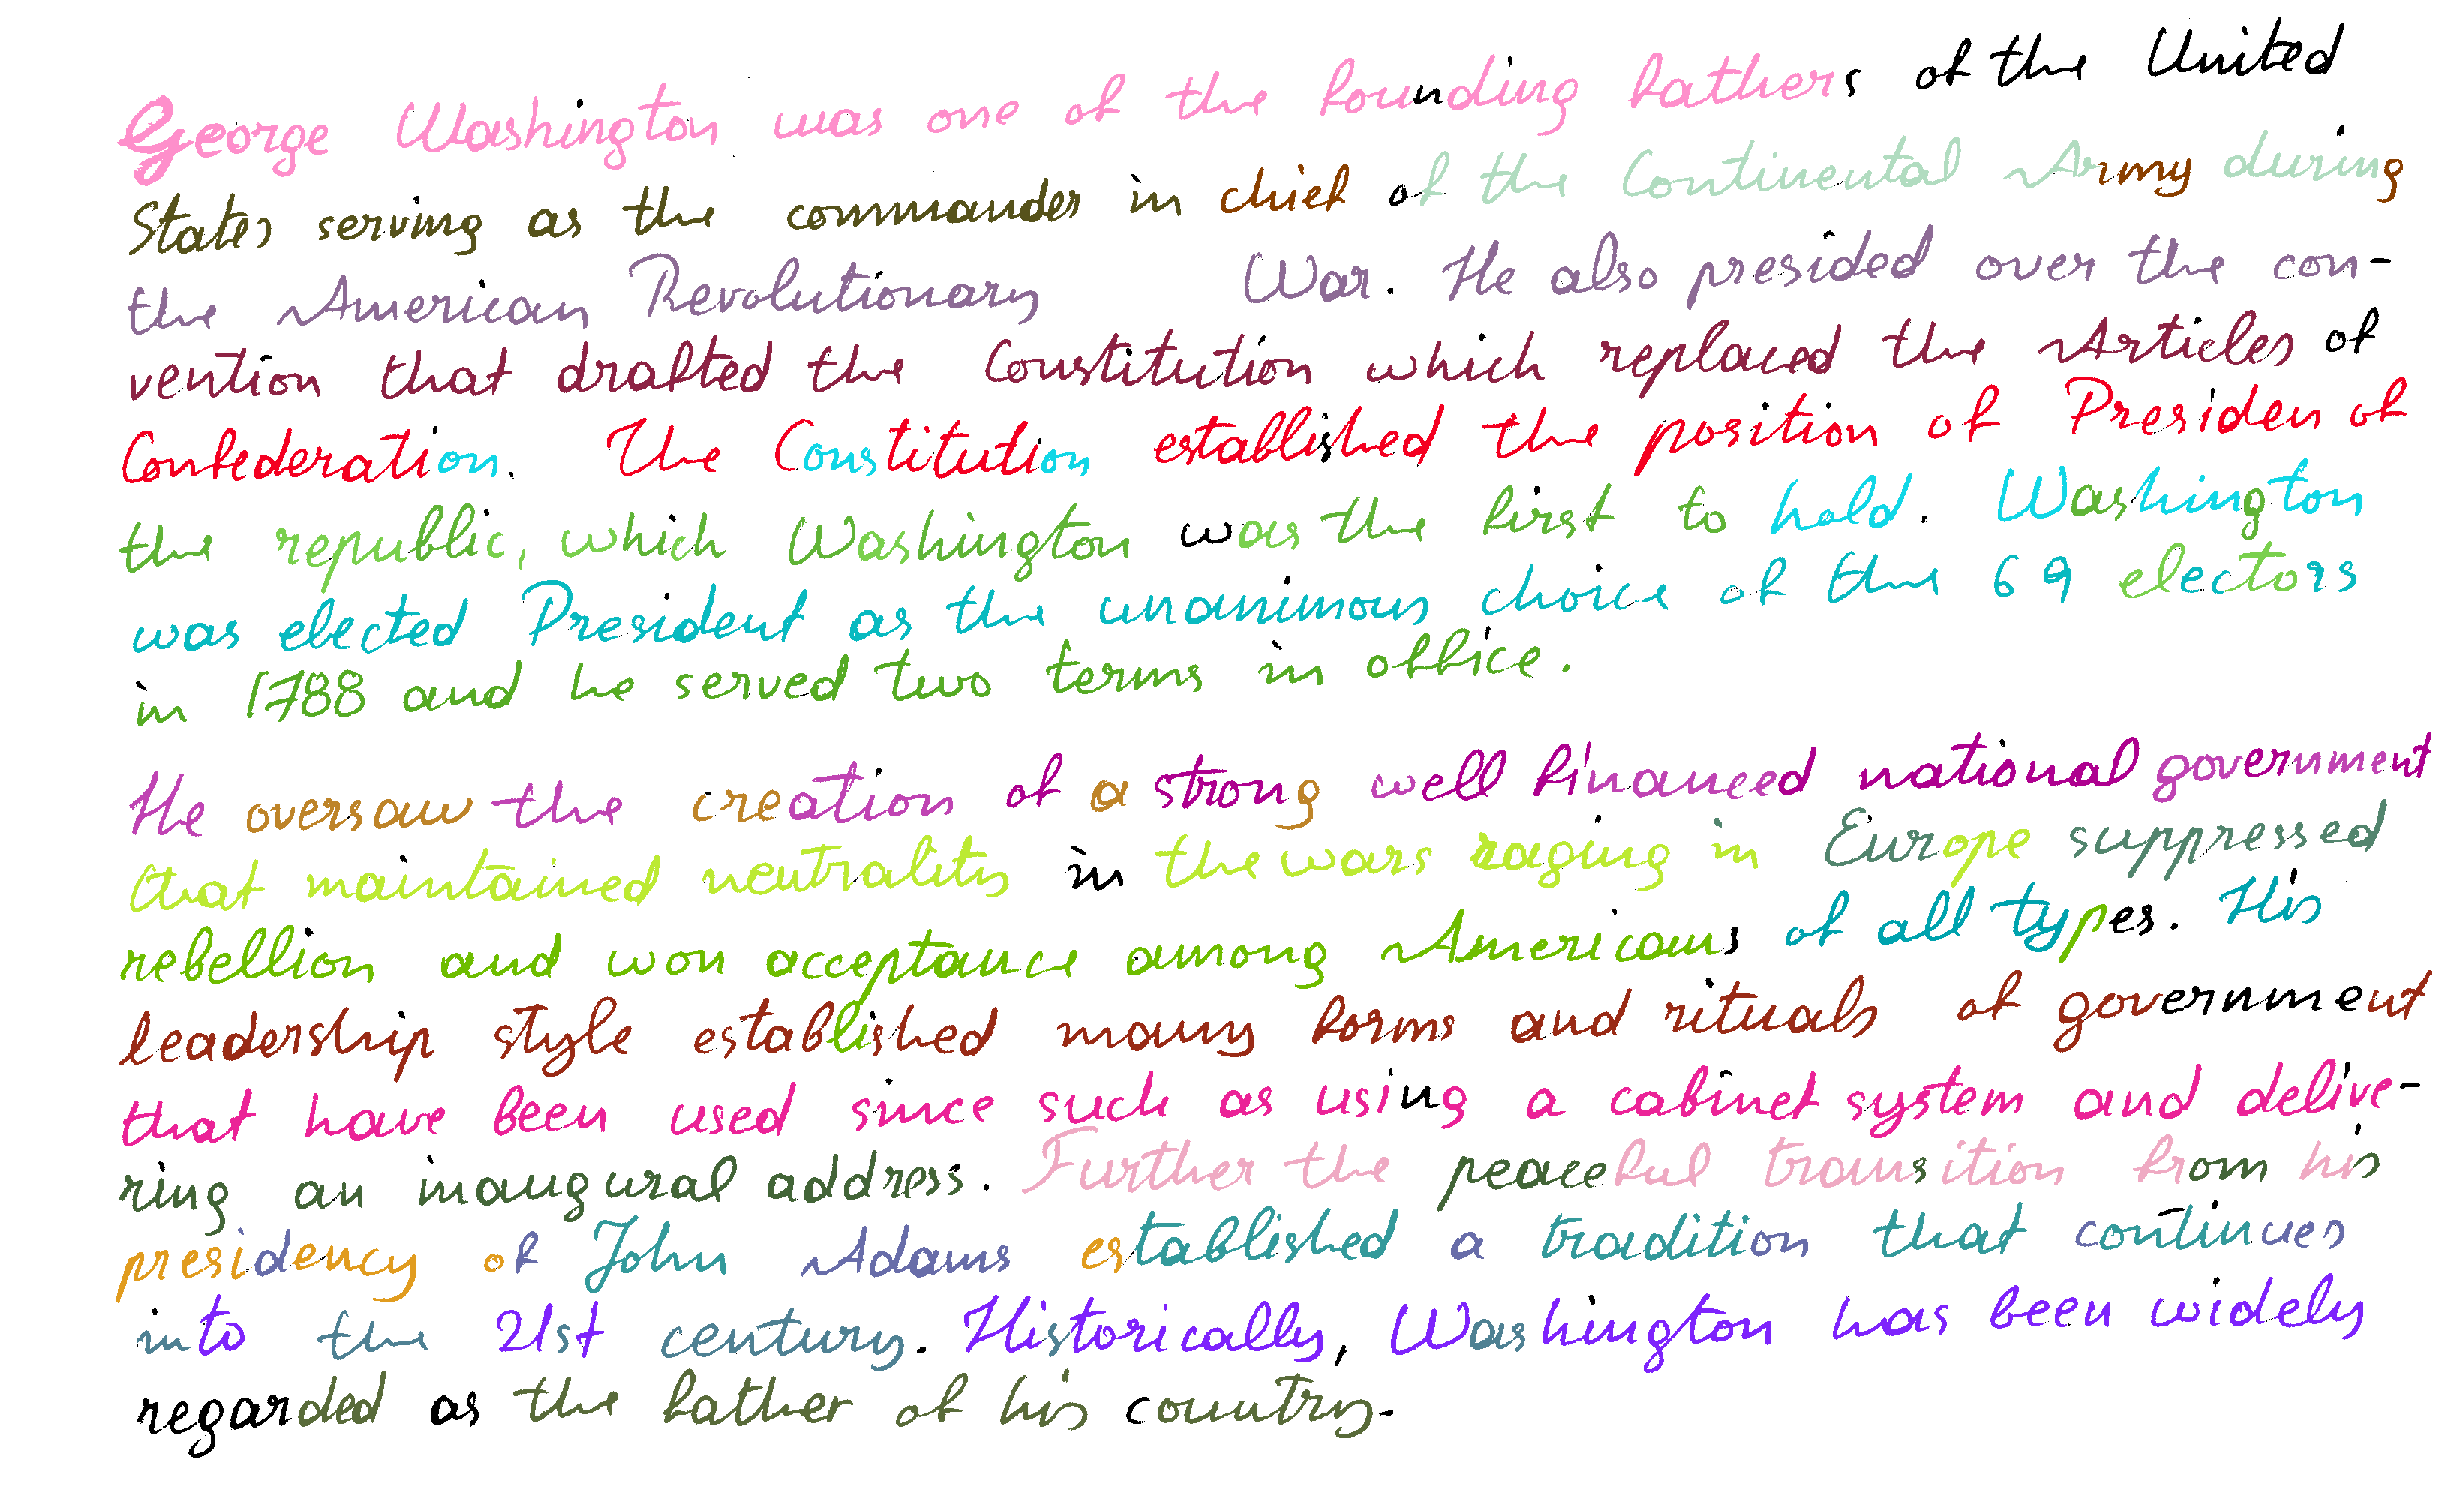 George Washington was one of the founding fathers of the United
States serving as the commander in chief of the Continental Army during
the American Revolutionary War. He also presided over the con-
vention that drafted the Constitution which replaced the Articles of
Confederation. The Constitution established the position of Presiden of
the republic, which Washington was the first to hold. Washington
was elected President as the unanimous choice of the 69 electors
in 1788 and he served two terms in office.
He oversaw the creation of a strong well financed national government
that maintained neutrality in the wars raging in Europe suppressed
rebellion and won acceptance among Americans of all types. His
leadership style established many forms and rituals of government
that have been used since such as using a cabinet system and delive-
ring an inaugural address. Further the peaceful transition from his
presidency of John Adams established a tradition that continues
into the 21st century. Historically, Washington has been widely
regarded as the father of his country.